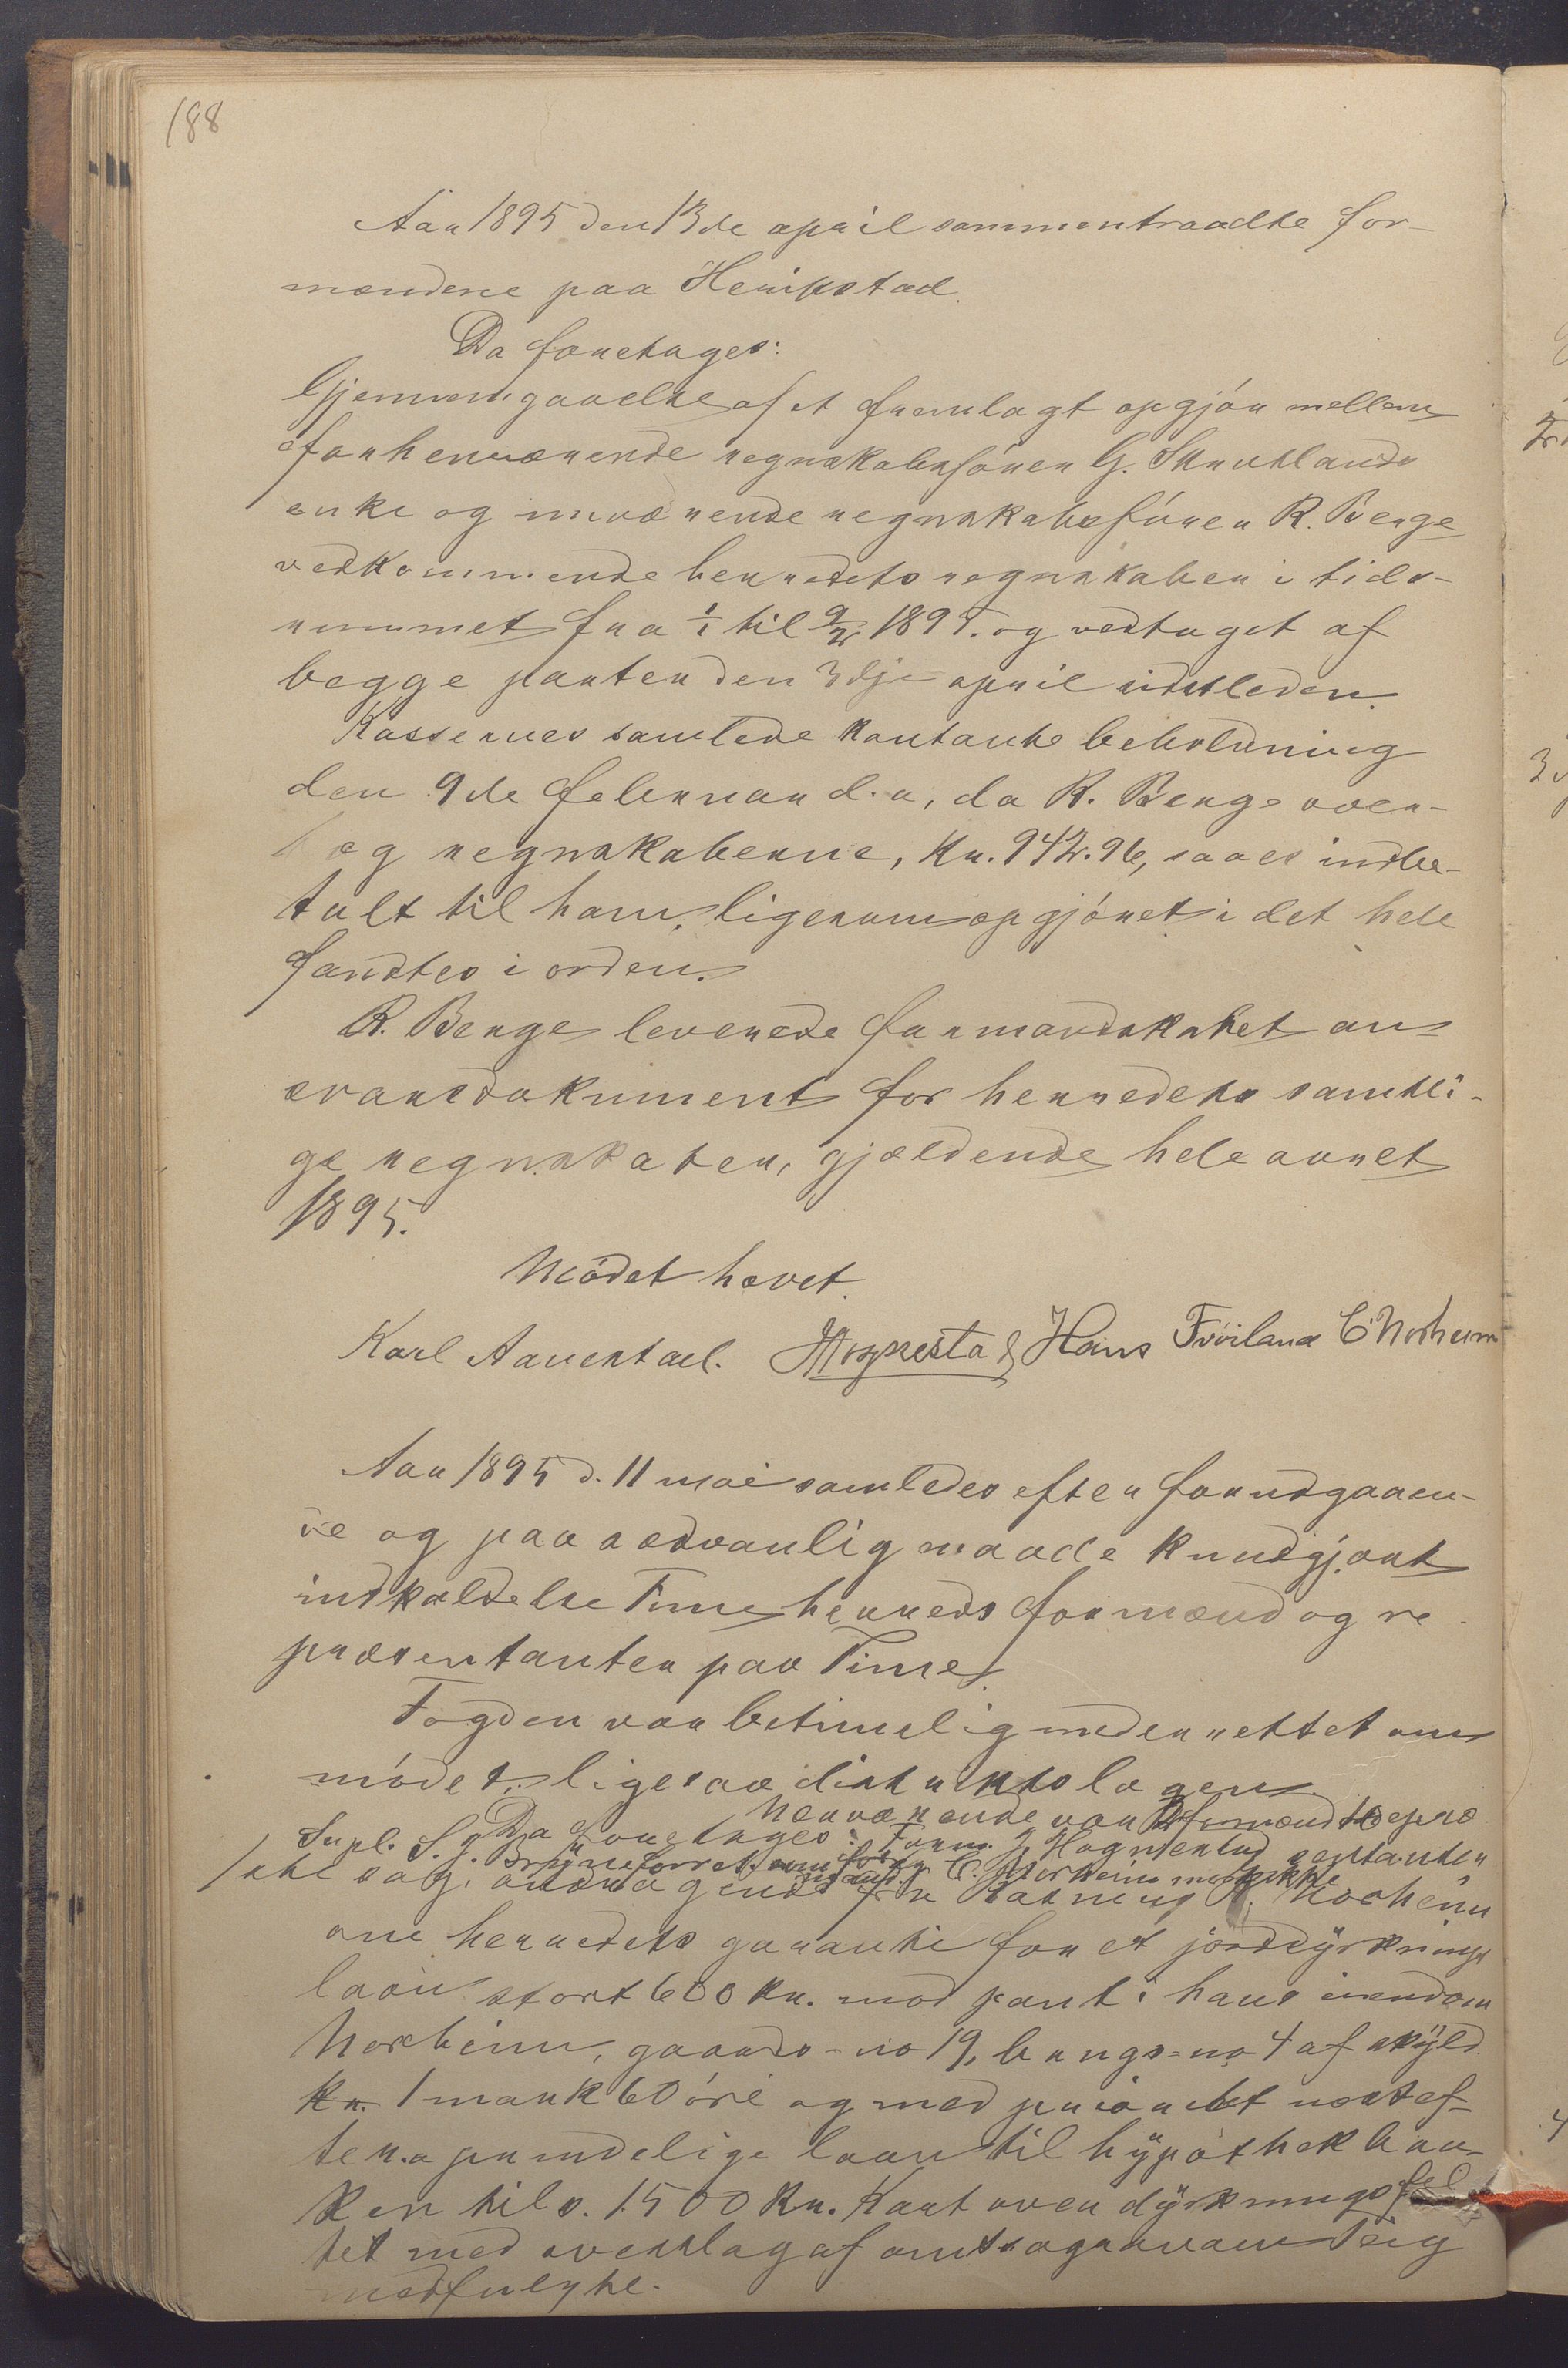 188
Aar 1895 den 13de april sammentraadte for-
mændene paa Herikstad.
Da foretages:
Gjennemgaaelse af et fremlagt opgjör mellem
forhenværende regnskabsförer G. Skrudlands
enke og nuværende regnskabsförer R. Berge
vedkommende herredets regnskaber i tids-
rummet fra 1/1 til 9/2 1895. og vedtaget af
begge parter den 3dje april sidstleden.
Kassernes samlede kontante beholdning
den 9de februar d. a, da R. Berge over-
tog regnskaberne, Kr. 942.96, saaes indbe-
talt til ham, ligesom opgjöret i det hele
fandtes i orden.
R. Berge leverede formandskabet an
svarsdokument for herredets samtli-
ge regnskaber, gjældende hele aaret
1895.
Mödet hævet.
Karl Aarrestad. Hans Fröiland C Norheim
Aar 1895 d. 11 mai samledes efter forudgaaen-
de og paa sedvanlig maade kundgjort
indkaldelse Time herreds formænd og re
præsentanter paa Time.
Fogden var betimelig underrettet om
mödet, ligesaa distriktslægen.
Nærværende var formænd repræ
Da foretages: Form. Hognestad sentanter
Supl. S. J. Bryne forret. som for
mand. C. Norheim mødte ikke
1ste sag. andragende fra Norheim
om herredets garanti for et jorddyrknings
laan stort 600 kr. mod pant i hans eiendom
Norheim, gaards-no 19, brugs-no 4 af skyld
Kr. 1 mark 60 öre og med prioritet næst ef-
ter oprindelige laan til hypothekban-
ken tils. 1500 Kr. Kart over dyrkningsfel
tet med overslag af amtsagronom Teig
medfulgte.